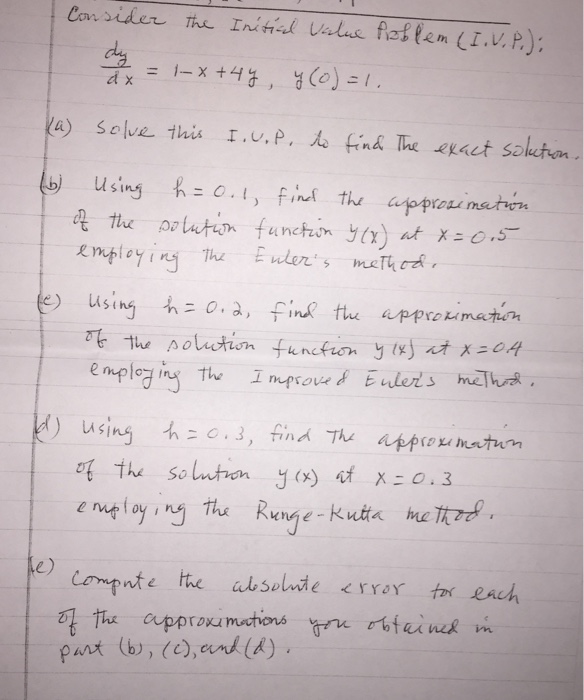 Consider the Initial Value Problem (I.V.P.):
dy/dx = 1-x+4y, y(0)=1.
(a) Solve this I.V.P. to find The exact solution.
(b) Using h=0.1, find the approximation
of the solution function y(x) at x=0.5
employing the Euler's method.
(c) Using h=0.2, find the approximation
of the solution function y(x) at x=0.4
employing the Improved Euler's method.
(d) Using h=0.3, find The approximation
of the solution y(x) at x=0.3
employing the Runge-Kutta method.
(e) Compute the absolute error for each
of the approximations you obtained in
part (b), (c), and (d).